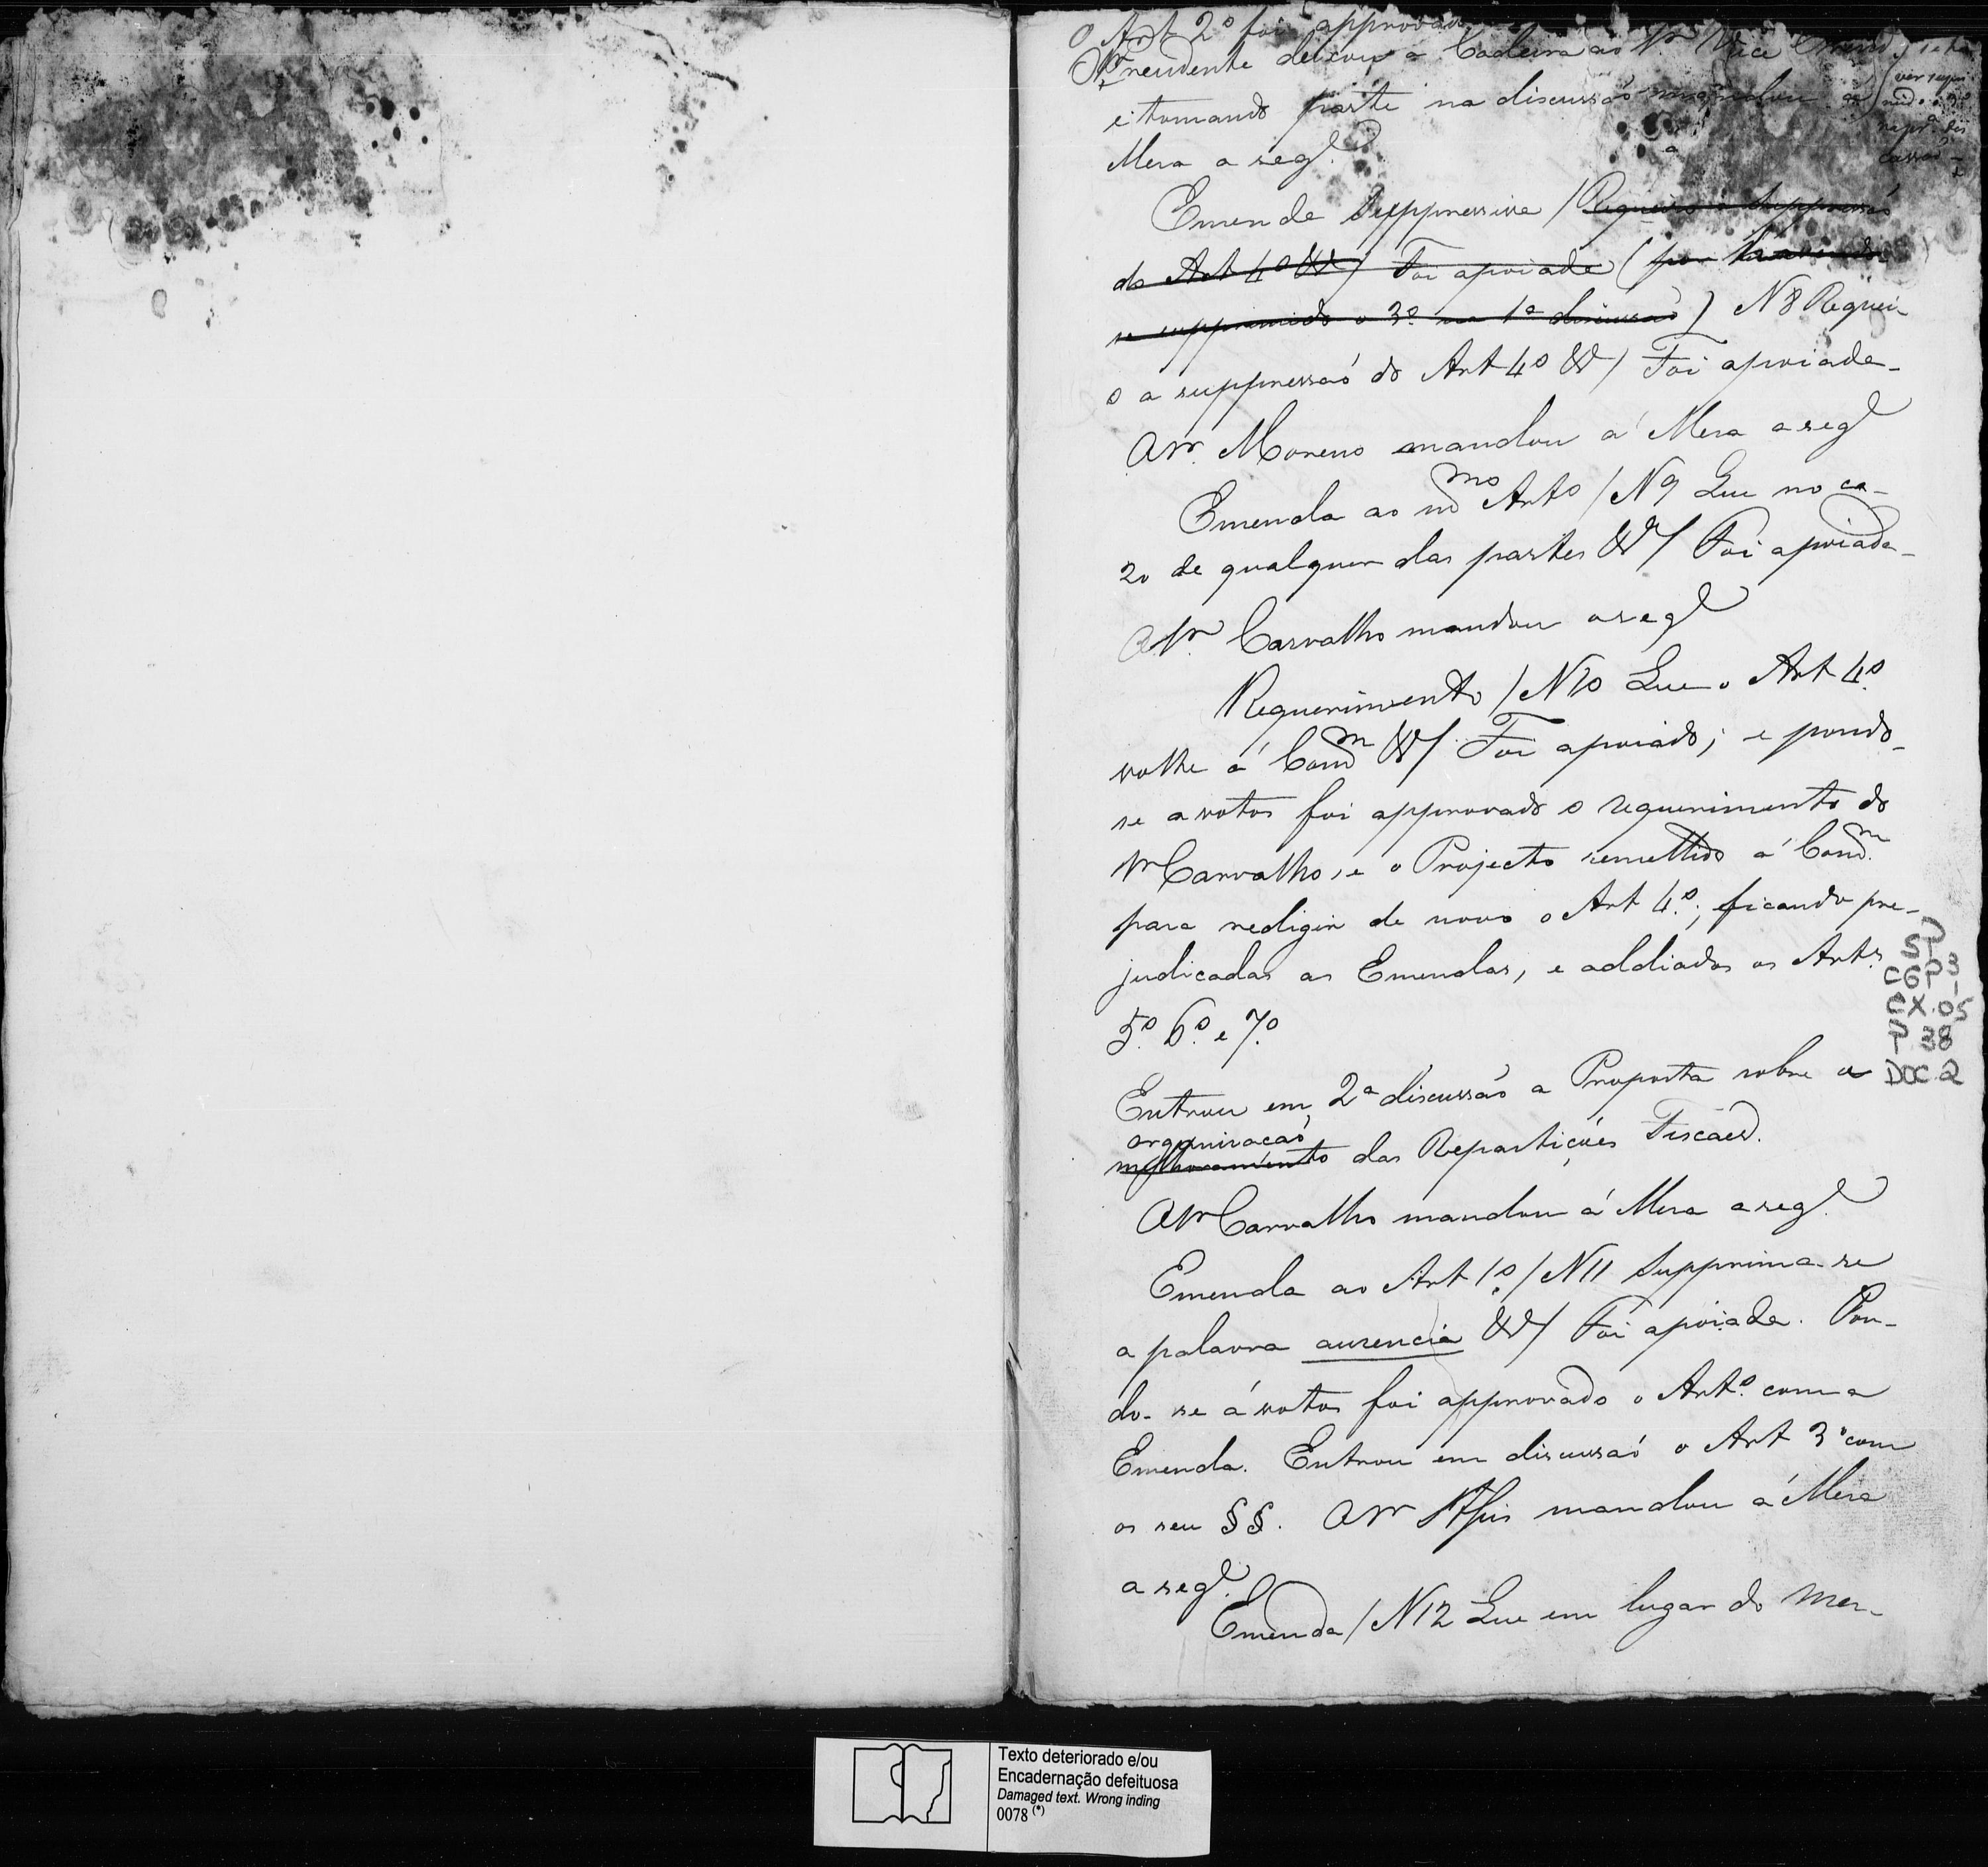 O Art 2º foi approvado
O Sr Presidente deixou a Cadeira ao Sr Vice
e tomando parte na discussaó mandou
Mesa a seg.e
Emenda Suppressiva / Requeiro a suppressaó
do Art 4º &r/ Foi apoiada (por
se supprimido o 3º na 1ª discussaó) N 8 Requei-
o a suppressaó do Art 4º &r/ Foi apoiada-
O Sr. Moreno mandou á Mesa a seg.e
Emenda ao mmo Arto / N 9 Que no ca-
zo de qualquer das partes &r/ Foi apoiada-
O Sr. Carvalho mandou o seg.e
Requerimento / N 10 Que o Art 4º
volte á Comm &r/ Foi apoiado; e pondo-
se a votos foi approvado o requerimento do
Sr Carvalho, e o Projecto remettido á Comm.
para redigir de novo o Art 4º; ficando pre-
judicadas as Emendas, e addiados os Arts.
5º 6º e 7º
Entrou em 2ª discussaó a Proposta sobre a
organisacaó
melhoramento das Repartiçoẽs Fiscaes.
O Sr Carvalho mandou á Mesa a seg.e
Emenda ao Art 1º / N 11 Supprima-se
a palavra ausencia &r/ Foi apoiada. Pon-
do-se á votos foi approvado o Artº com a
Emenda. Entrou em discussaó o Art 3º com
os seu §§. O Sr mandou á Mesa
a seg.e
Emenda / N 12 Que em lugar do Mes-
ST
CGP 3
CX.05
P 38
DOC.2
Texto deteriorado e/ou
Encadernação defeituosa
Damaged text. Wrong inding
0078 (*)